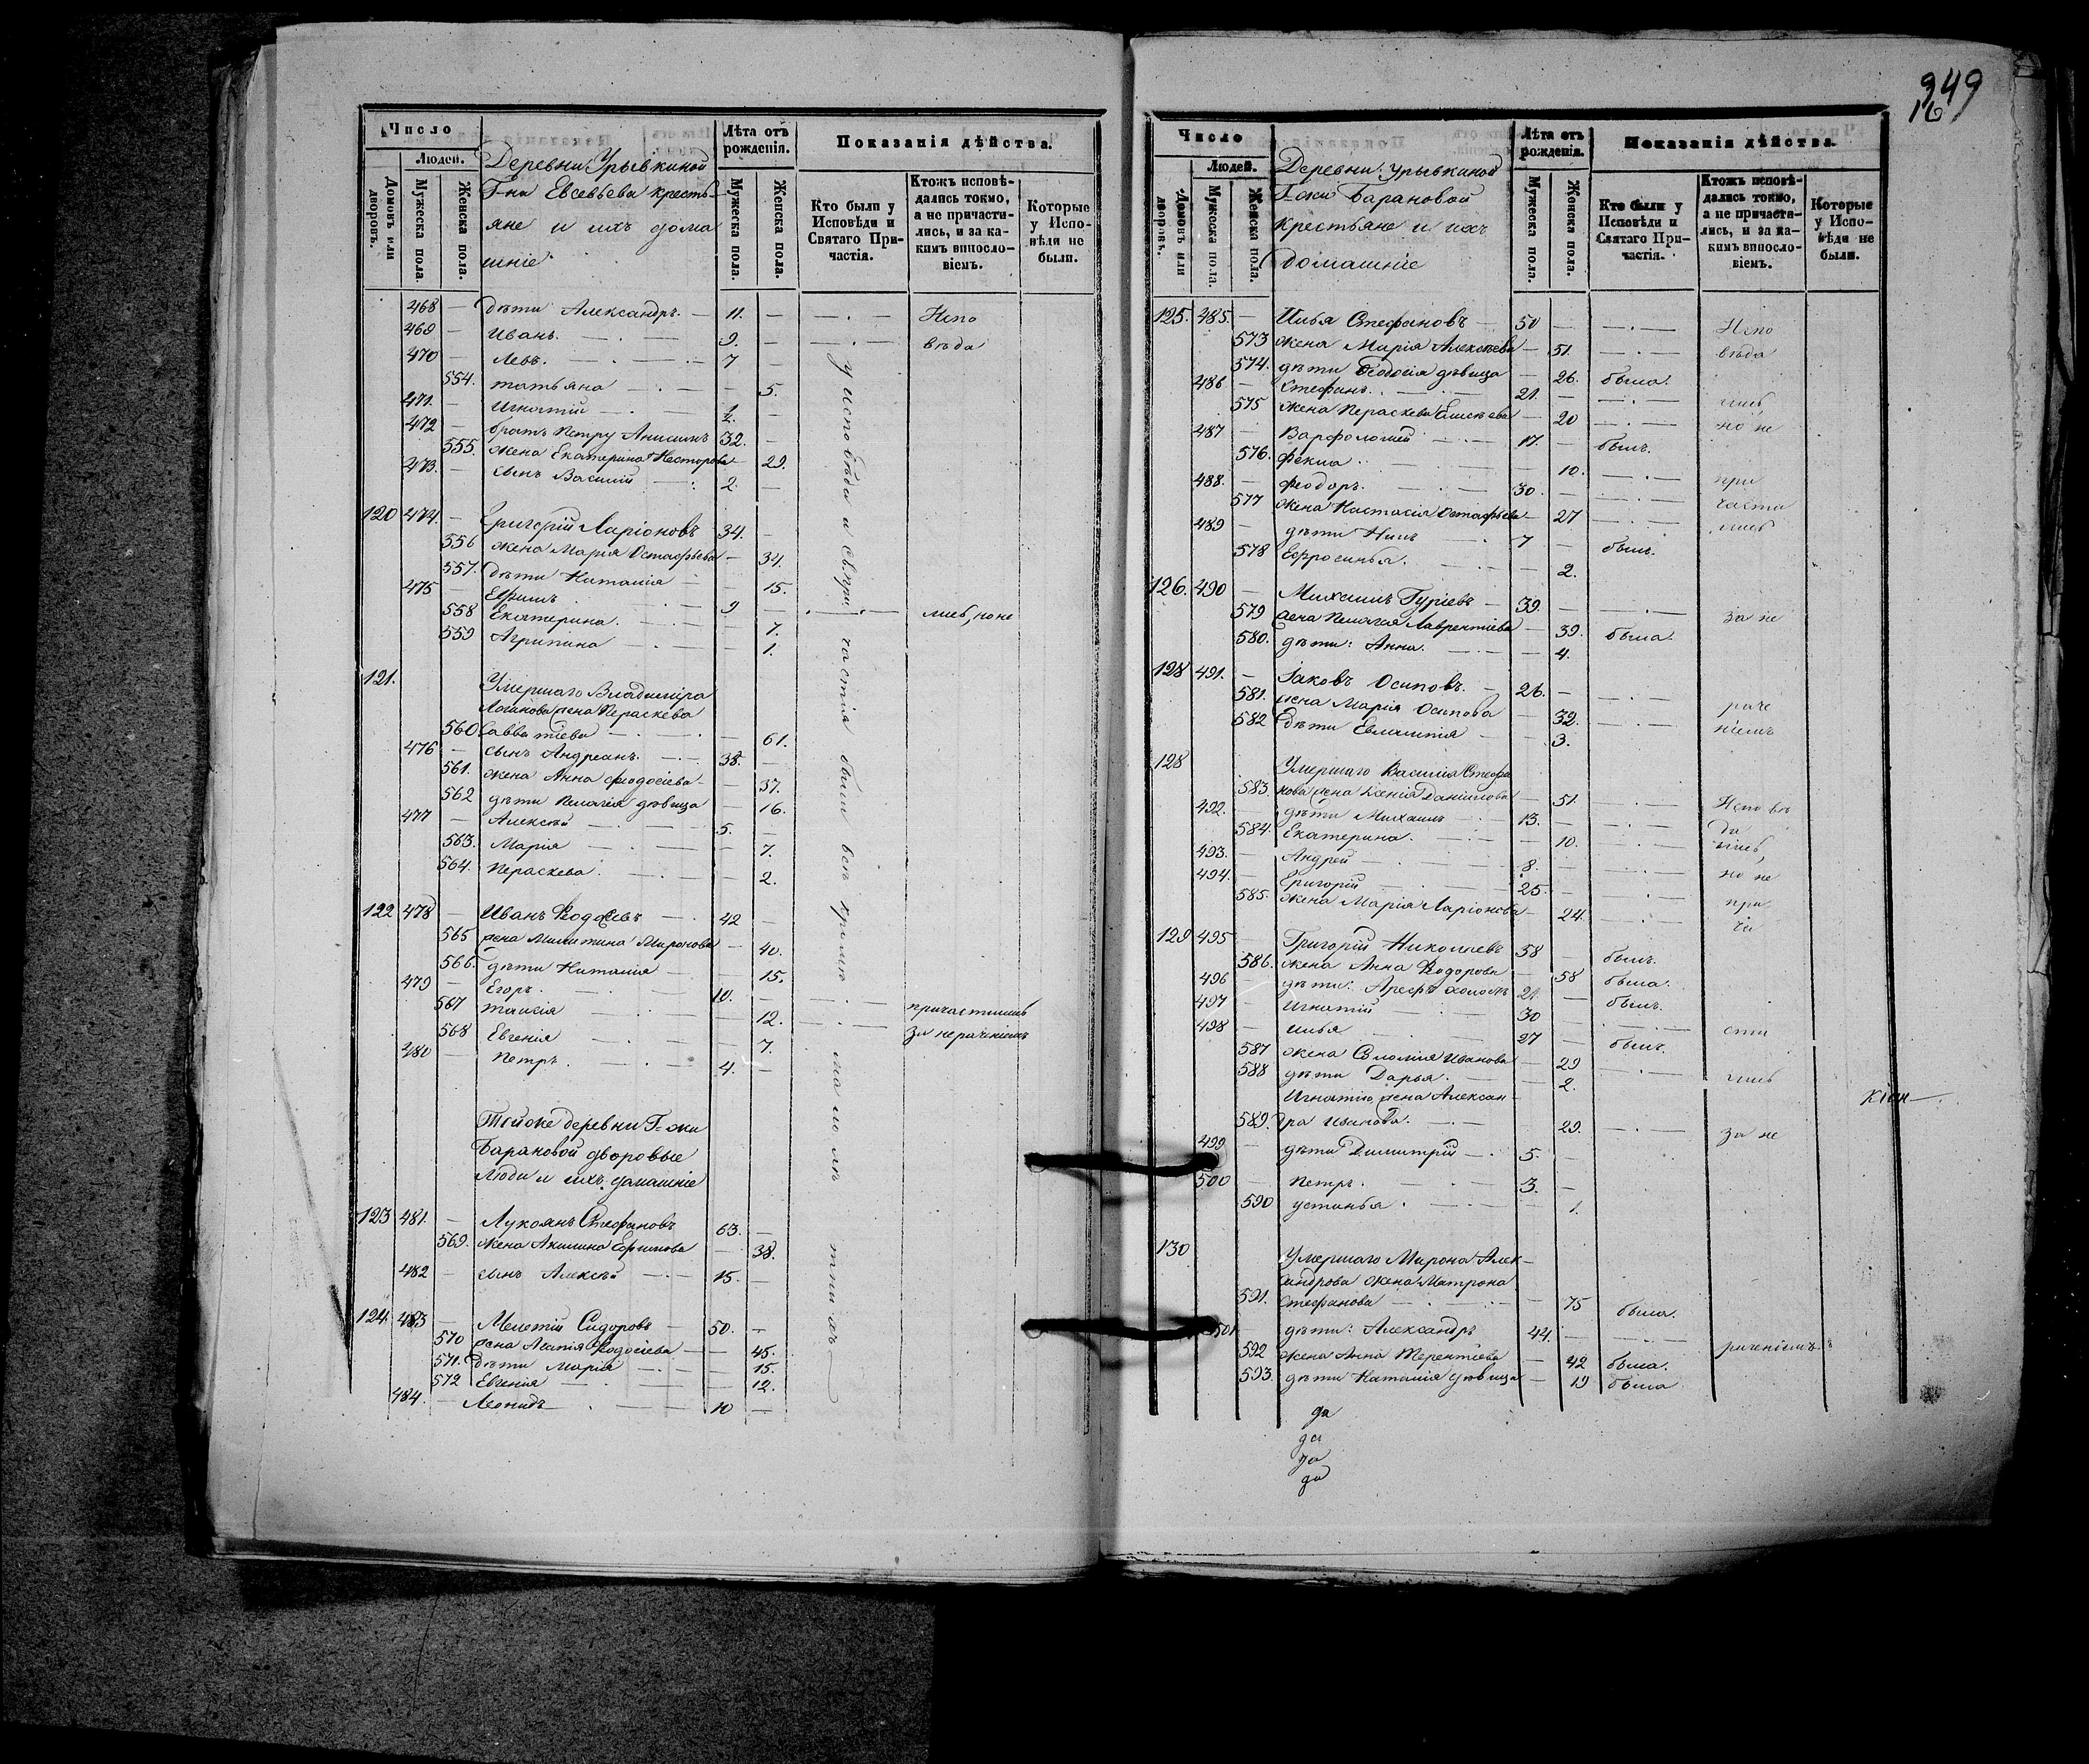 Число
Людей.
Домовъ или дворовъ.
Мужеска пола.
Женска пола.
Деревни Урывкиной
Г-на Евсевьева кресть-
яне и ихъ дома
шніе
Лѣта отъ рожденія.
Мужеска пола.
Женска пола.
Показанія дѣйства.
Кто были у Исповѣди и Святаго Причастія.
Ктожъ исповѣдались токмо, а не причастились, и за какимъ винословіемъ.
Которые у Исповѣди не были.
468 — дѣти Александръ. — 11. — Испо
469 — Иванъ. — 9. — вѣда
470 — Левъ. — 7 —
554. Татьяна — 5.
471. — Игнатій — ½. —
472 — братъ Петру Анисимъ 32. —
555. жена Екатерина Несторова — 29.
473. — сынъ Василій — 2. —
120 474. — Григорій Ларіоновъ 34. —
556 жена Марія Остафьева — 34.
557. дѣти Наталія — 15.
475 — Ефимъ — 9 — лись, но не
558 Екатерина. — 7.
559 Агрипина — 1.
121. Умершаго Владиміра
Логинова жена Параскева
560 Савватіева — 61.
476 — сынъ Андреанъ. — 38. —
561. жена Анна Феодосіева — 37.
562 дѣти Пелагія дѣвица — 16.
477 — Алексѣй — 5. —
563. Марія — 7.
564. Пераскева. — 2.
122 478 — Иванъ — 42 —
565 жена Милитина Миронова — 40.
566. дѣти Наталія — 15.
479 — Егоръ. — 10. —
567 Таисія — 12. причастились
568 Евгенія — 7. за нераченіемъ
480 — Петръ. — 4. —
у исповѣди и св. при частія были всѣ кромѣ малолѣтнихъ
Тойже деревни Г-жи
Барановой дворовые
люди и ихъ домашніе
123 481. — Лукоянъ Стефановъ 63. —
569. жена Акилина Ефимова — 38.
482 — сынъ Алексѣй — 15. —
124. 483 — Мелетій Сидоровъ — 50. —
570 жена Агапія Ѳодосіева — 45.
571. дѣти Марія — 15.
572 Евгенія — 12.
484. — Леонидъ — 10 —
949
16
Число
Людей.
Домовъ или дворовъ.
Мужеска пола.
Женска пола.
Деревни Урывкиной
Г-жи Барановой
крестьяне и ихъ
домашніе
Лѣта отъ рожденія.
Мужеска пола.
Женска пола.
Показанія дѣйства.
Кто были у Исповѣди и Святаго Причастія.
Ктожъ исповѣдались токмо, а не причастились, и за какимъ винословіемъ.
Которые у Исповѣди не были.
125. 485. — Илья Стефановъ — 50 — Испо
573 жена Марія Алексѣева — 51. — вѣда
574. дѣти Ѳеодосія дѣвица — 26. была.
486 — Стефанъ. — 21. — лись
575 жена Пераскева Елисѣева — 20 — но не
487 — Варфоломей — 17. — былъ.
576. Фекла — 10.
488. — Феодоръ. — 30. — при
577 жена Настасія Остафьева — 27 — часті
489 — дѣти Нилъ — 7 — былъ. лись
578 Ефросинья. — 2.
126. 490 — Михаилъ Гуріевъ — 39. — за не
579 жена Пелагея Лаврентіева — 39. была.
580. дѣти: Анна. — 4.
128 491. — Іаковъ Осиповъ. — 26. —
581. жена Марія Осипова — 32. — раче
582 дѣти Евлампія — 3. ніемъ
128 Умершаго Василія Стефа
583. нова жена Ксенія Даніилова — 51. — Испо вѣ
492. — дѣти Михаилъ — 13. — да
584. Екатерина. — 10. — лись,
493. — Андрей — 8.
494. — Григорій — 25. — но не
585. жена Марія Ларіонова — 24. — при
129 495 — Григорій Николаевъ 58 — былъ. ча
586. жена Анна Ѳодорова — 58 была.
496 — дѣти: Арефъ холостъ 21. — былъ.
497 — Игнатій — 30 — сти
498 — Илья — 27 — былъ.
587 жена Соломія Иванова — 29
588 дѣти Дарья. — 2. лись
Игнатію жена Алексан-
589. дра Иванова. — 29. — за не
499 — дѣти Димитрій — 5. —
500 — Петръ. — 3. —
590 Устинья. — 1.
130 Умершаго Мирона Алек-
сандрова жена Матрона
591. Стефанова — 75 была.
501 — дѣти: Александръ 44. —
592 жена Анна Терентіева — 42 была. раченіемъ
593. дѣти Наталія дѣвица — 19 была
да
да
да
да